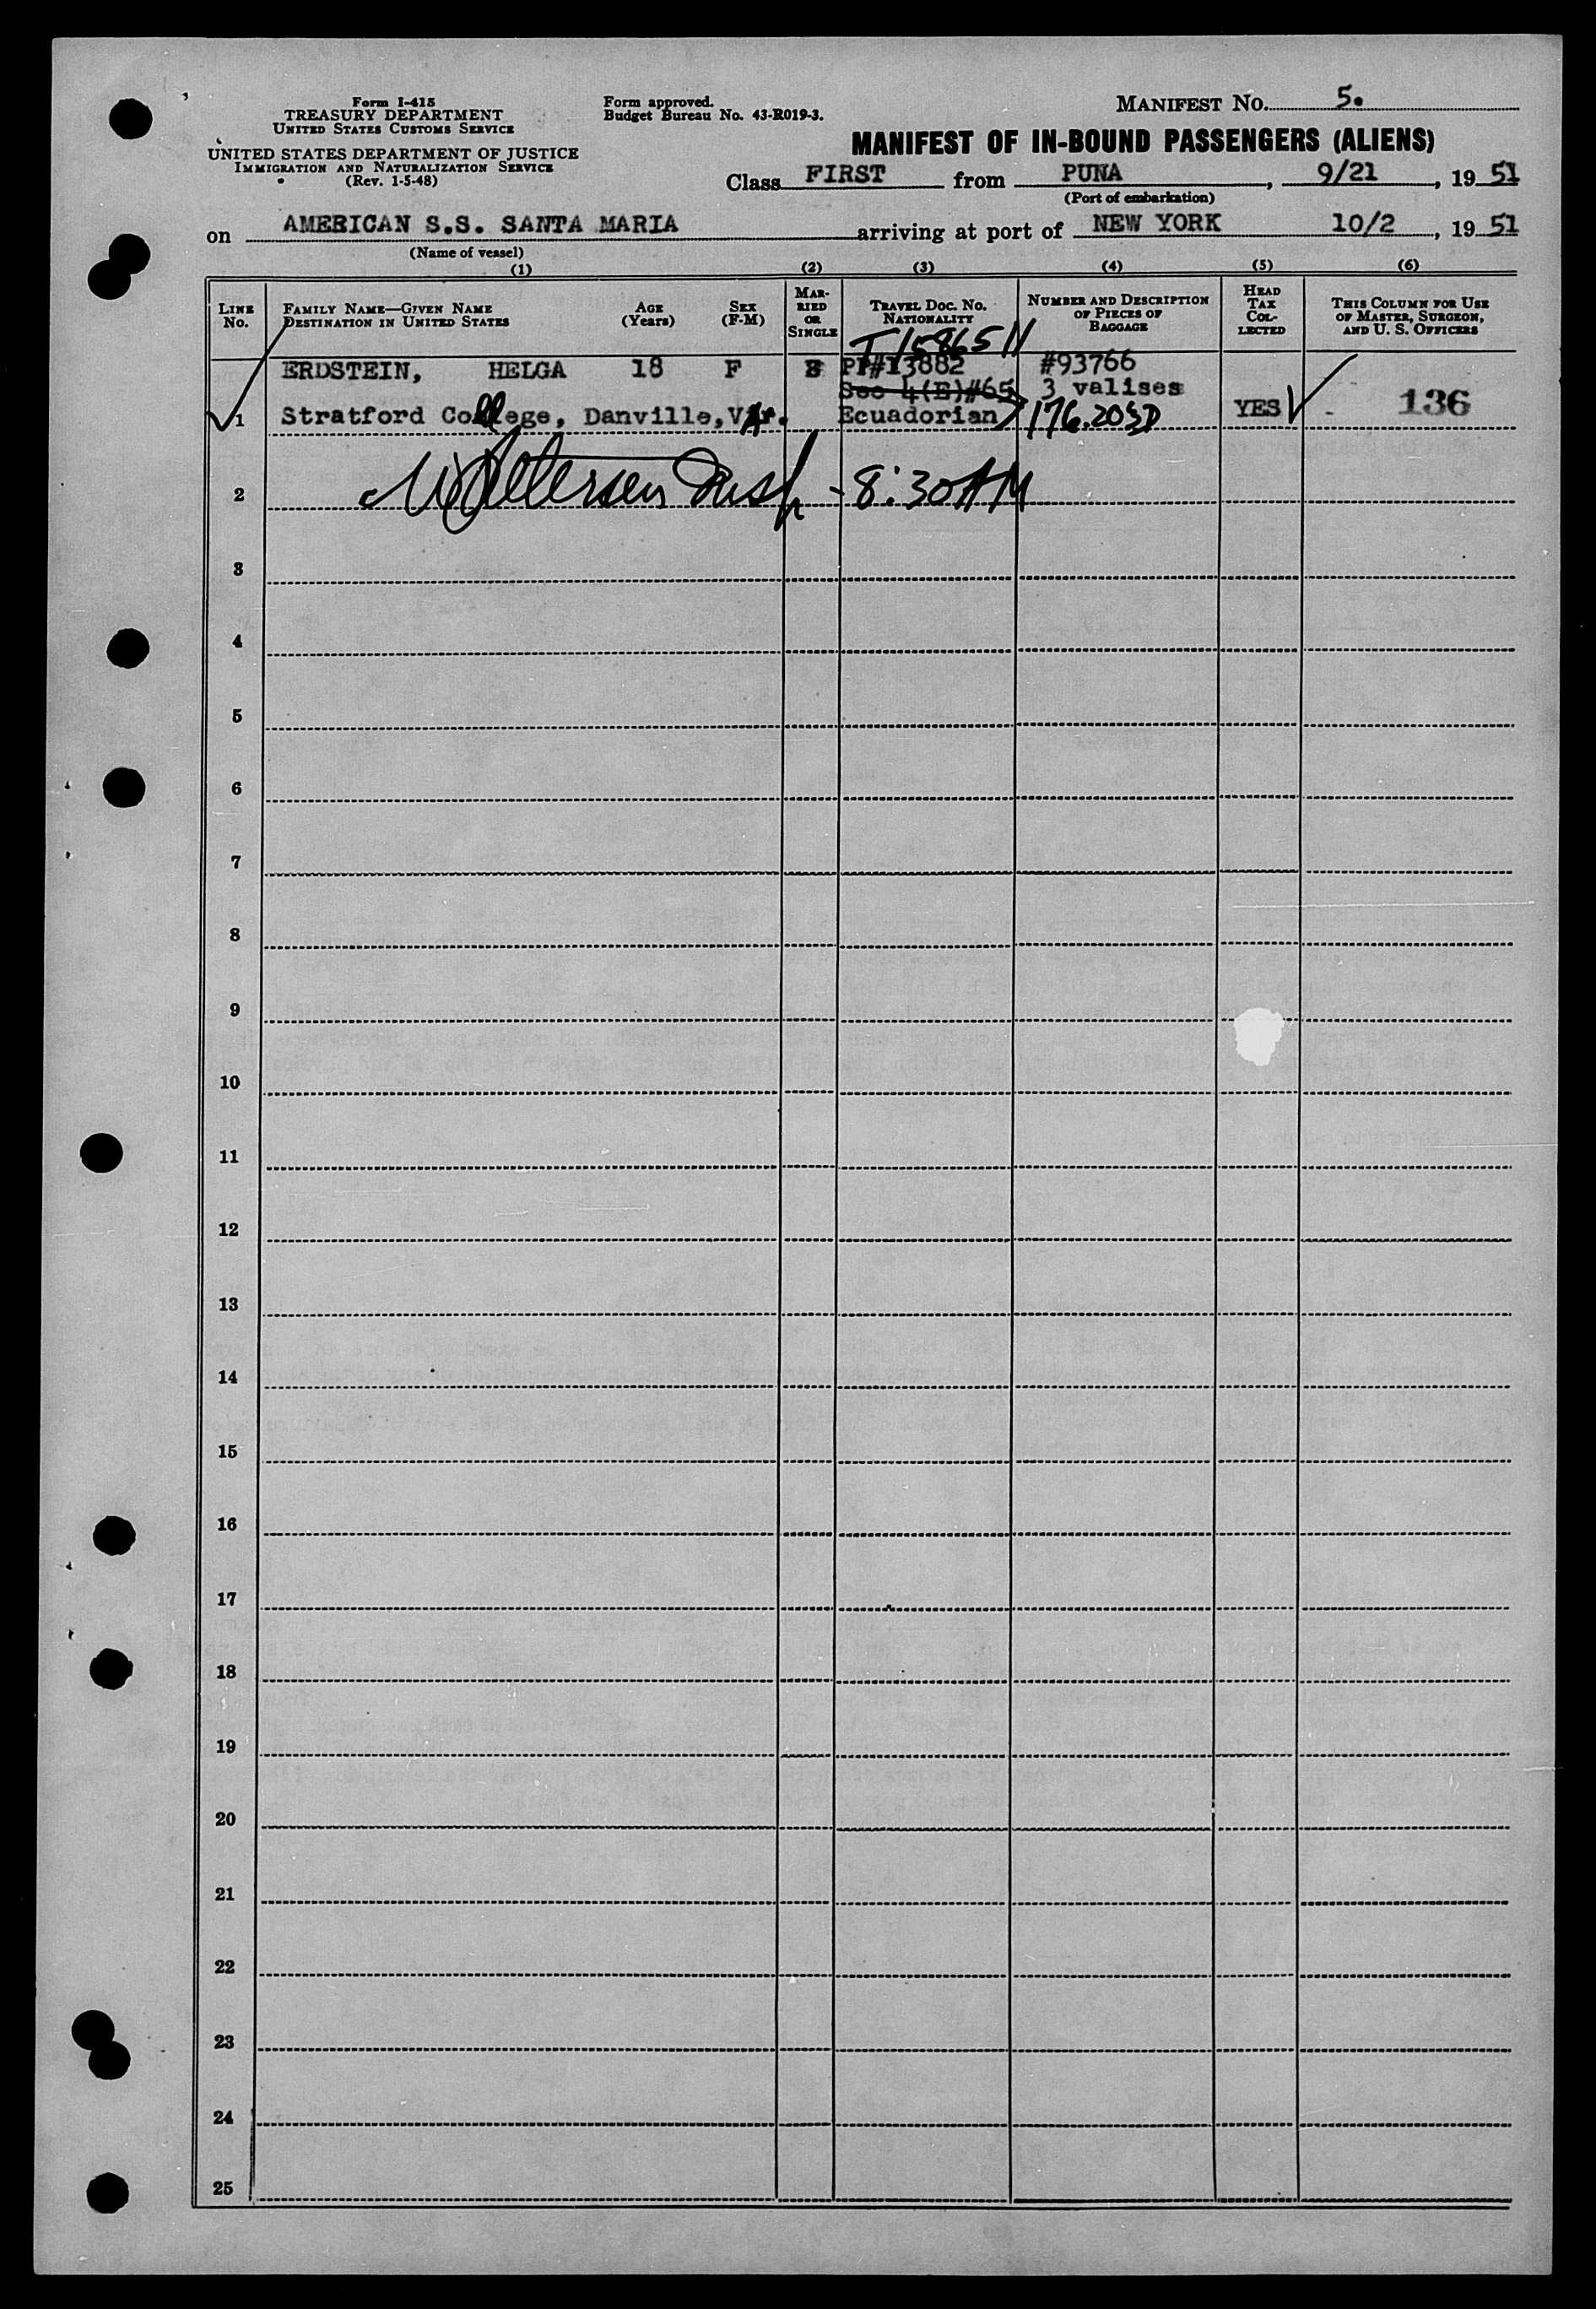 Form I-415
TREASURY DEPARTMENT
UNITED STATES CUSTOMS SERVICE
UNITED STATES DEPARTMENT OF JUSTICE
IMMIGRATION AND NATURALIZATION SERVICE
(Rev. 1-5-48)
Form approved.
Budget Bureau No. 43-R019-3.
MANIFEST No. 5.
MANIFEST OF IN-BOUND PASSENGERS (ALIENS)
Class FIRST from PUNA, 9/21, 1951
(Port of embarkation)
on AMERICAN S.S. SANTA MARIA arriving at port of NEW YORK 10/2, 1951
(Name of vessel)
(1) (2) (3) (4) (5) (6)
LINE No.
FAMILY NAME—GIVEN NAME
DESTINATION IN UNITED STATES
AGE (Years)
SEX (F-M)
MARRIED OR SINGLE
TRAVEL DOC. No. NATIONALITY
NUMBER AND DESCRIPTION OF PIECES OF BAGGAGE
HEAD TAX COLLECTED
THIS COLUMN FOR USE OF MASTER, SURGEON, AND U. S. OFFICERS
ERDSTEIN, HELGA 18 F S PP#13882 #93766
Sec 4(E)#65 3 valises
1 Stratford College, Danville, Ecuadorian 176.203D YES 136
2 8:30 AM
3
4
5
6
7
8
9
10
11
12
13
14
15
16
17
18
19
20
21
22
23
24
25